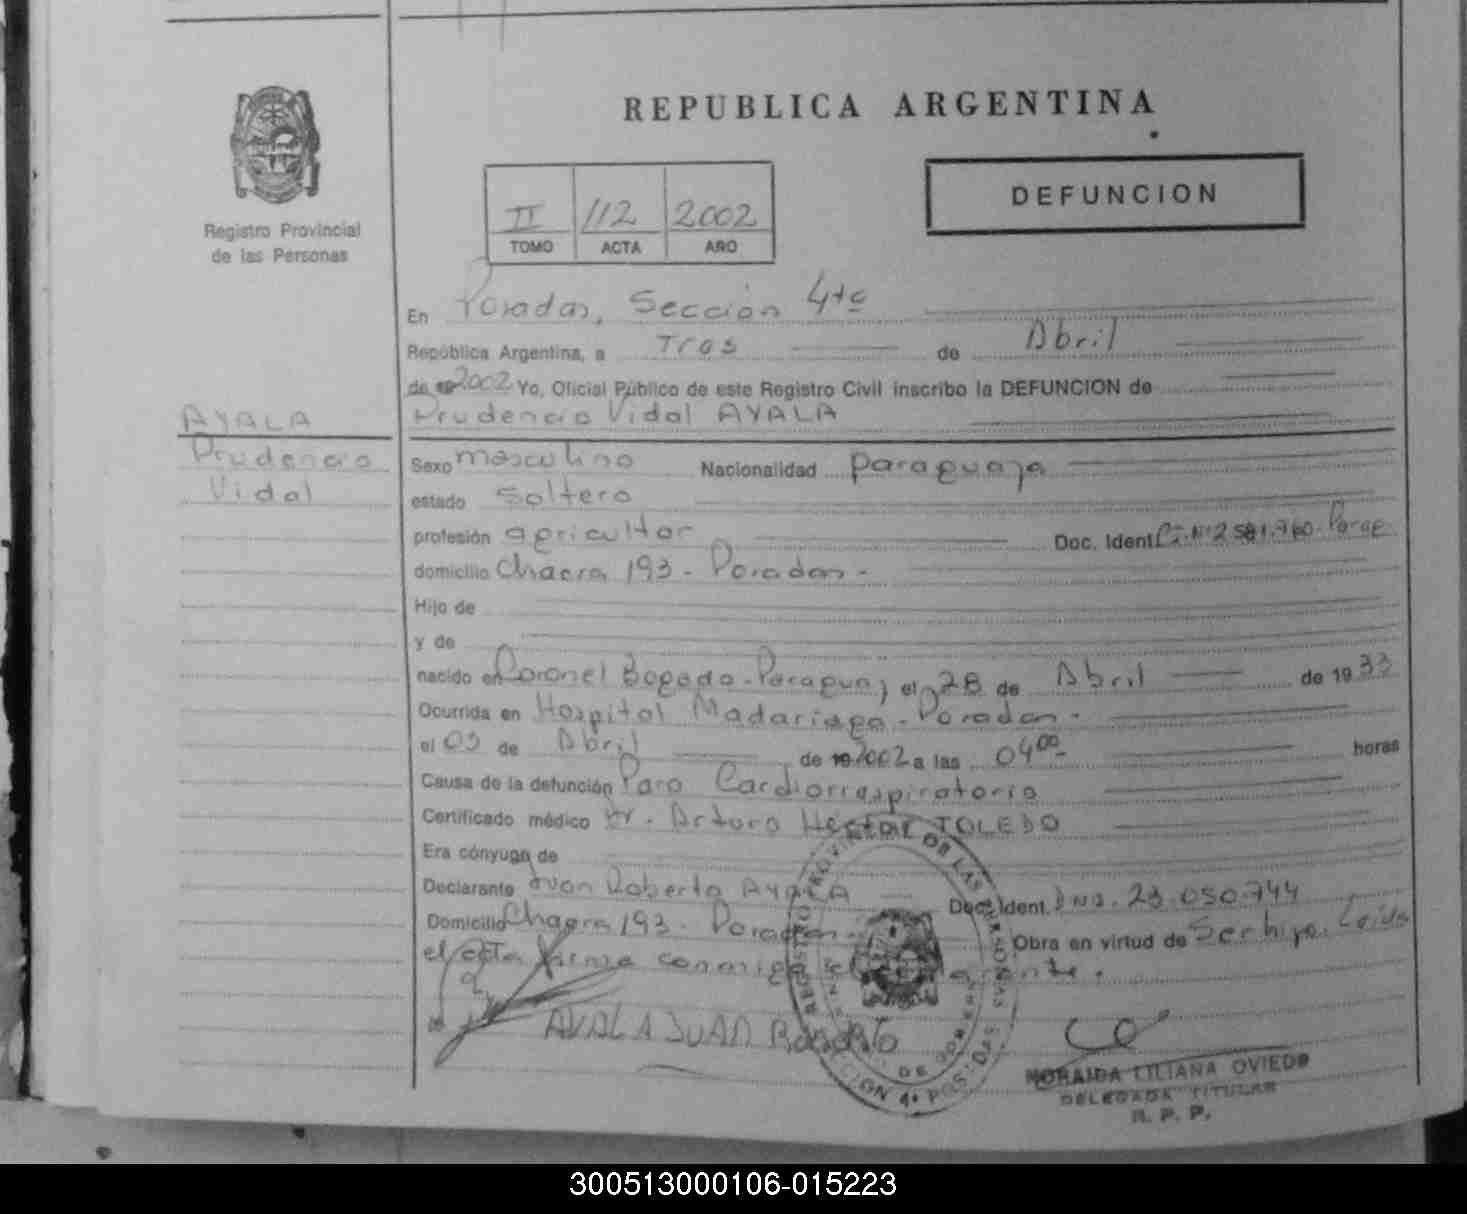 REPUBLICA ARGENTINA
Registro Provincial
de las Personas
II 112 2002
TOMO ACTA AÑO
DEFUNCION
En Posadas, Sección 4ta
República Argentina, a Tres de Abril
de 19 2002 Yo, Oficial Público de este Registro Civil inscribo la DEFUNCION de
Prudencio Vidal AYALA
AYALA
Prudencio
Vidal
Sexo masculino Nacionalidad paraguaya
estado Soltero
profesión agricultor Doc. Ident. C.I. Nº 2581.760. Parag
domicilio Chacra 193 - Posadas -
Hijo de
y de
nacido en Coronel Bogado - Paraguay el 28 de Abril de 1933
Ocurrida en Hospital Madariaga - Posadas -
el 03 de Abril de 19 2002 a las 04 00 horas
Causa de la defunción Paro Cardiorrespiratorio
Certificado médico Dr. Arturo Héctor TOLEDO
Era cónyuge de
Declarante Juan Roberto AYALA Doc. Ident. DNI. 23.050.744
Domicilio Chacra 193 - Posadas - Obra en virtud de Ser hijo. Leída
el acta firma conmigo el
AYALA JUAN Roberto
SECCION 4ª POSADAS
NORAIDA LILIANA OVIEDO
DELEGADA TITULAR
R. P. P.
300513000106-015223